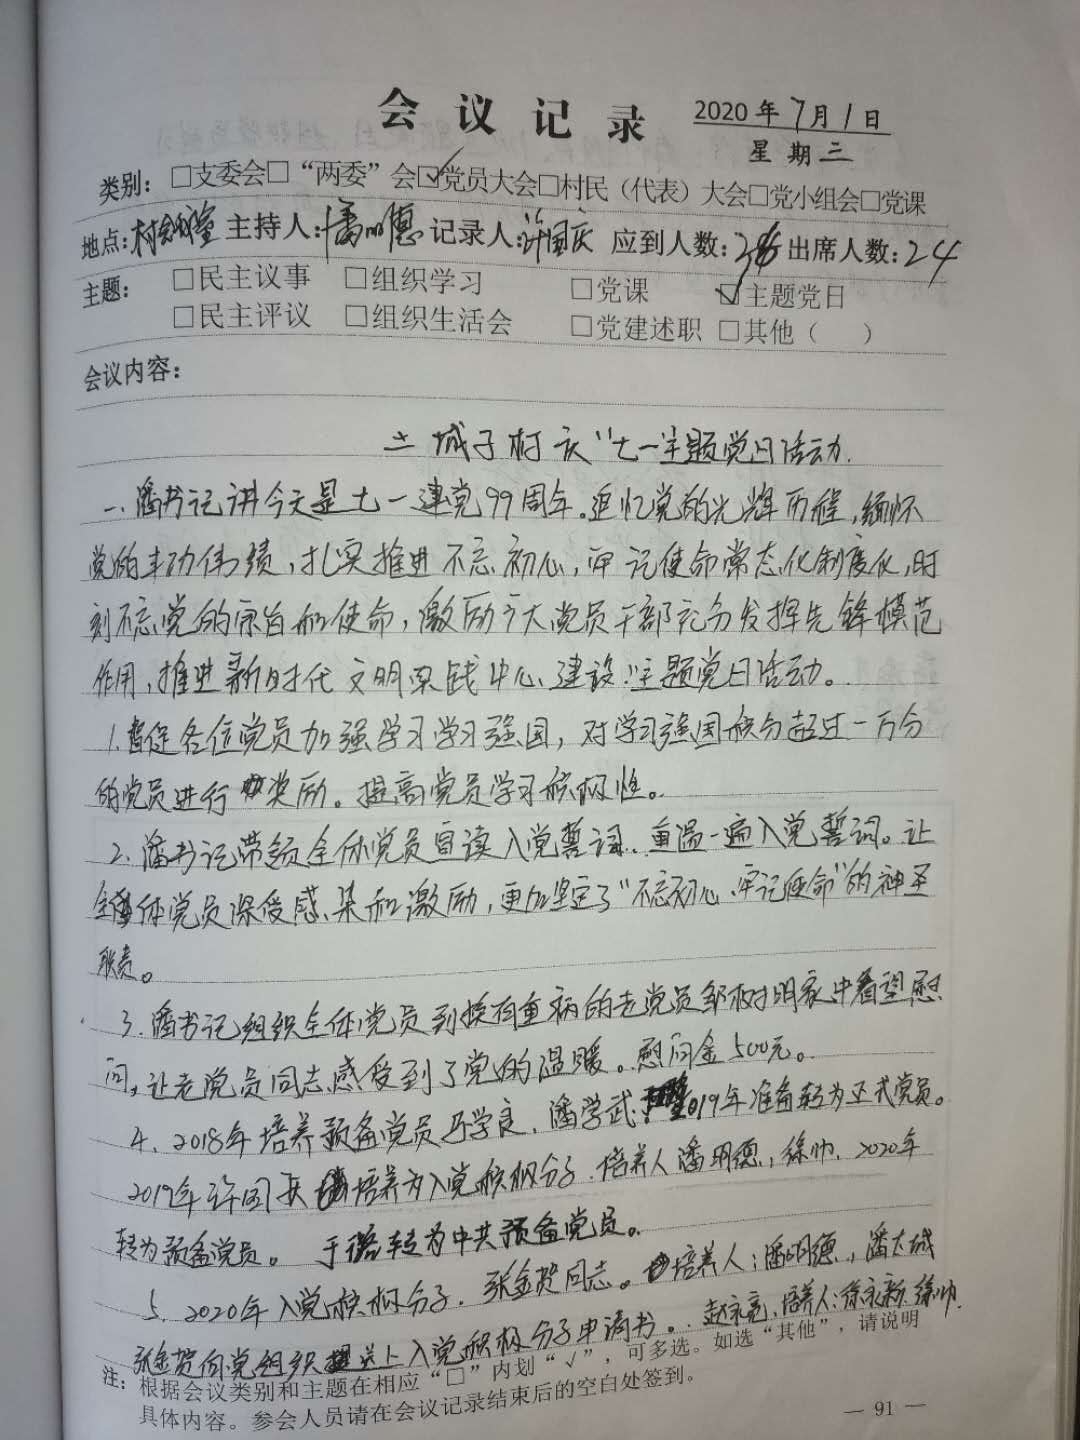 会议记录
2020年7月1日
星期三
类别：□支委会□“两委”会☑党员大会□村民（代表）大会□党小组会□党课
地点：村会议室 主持人：潘明德 记录人：许国庆 应到人数： 出席人数：24
主题： □民主议事 □组织学习 □党课 ☑主题党日
□民主评议 □组织生活会 □党建述职 □其他（ ）
会议内容：
土城子村庆“七一”主题党日活动.
一、潘书记讲今天是七一建党99周年。追忆党的光辉历程，缅怀
党的丰功伟绩，扎实推进不忘初心，牢记使命常态化制度化，时
刻不忘党的宗旨和使命，激励广大党员干部充分发挥先锋模范
作用，推进新时代文明实践中心建设“主题党日活动。
1.督促各位党员加强学习学习强国，对学习强国积分超过一万分
的党员进行奖励。提高党员学习积极性。
2.潘书记带领全体党员宣读入党誓词..重温一遍入党誓词。让
全体党员深受感染和激励，更加坚定了“不忘初心、牢记使命”的神圣
职责。
3.潘书记组织全体党员到换有重病的老党员邹树明家中看望慰
问，让老党员同志感受到了党的温暖。慰问金500元。
4、2018年培养预备党员马学良、潘学武，2019年准备转为正式党员。
2019年许国庆培养为入党积极分子.培养人潘明德，徐帅、2020年
转为预备党员。 于 转为中共预备党员。
5、2020年入党积极分子.张金贺同志。培养人：潘明德，潘大城
张金贺向党组织递送上入党积极分子申请书。.赵永亮，培养人：徐永新 徐帅.
注：根据会议类别和主题在相应“□”内划“√”，可多选。如选“其他”，请说明
具体内容。参会人员请在会议记录结束后的空白处签到。
— 91 —